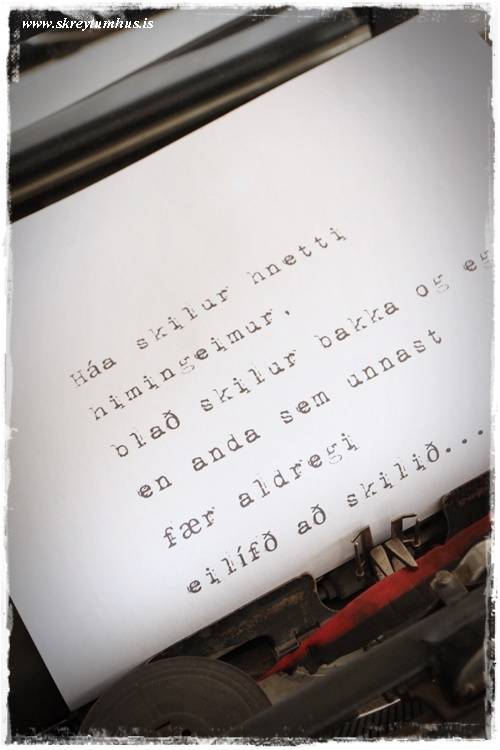 www.skreytumhus.is
Háa skilur hnetti
himingeimur,
blað skilur bakka og eg
en anda sem unnast
fær aldregi
eilífð að skilið...